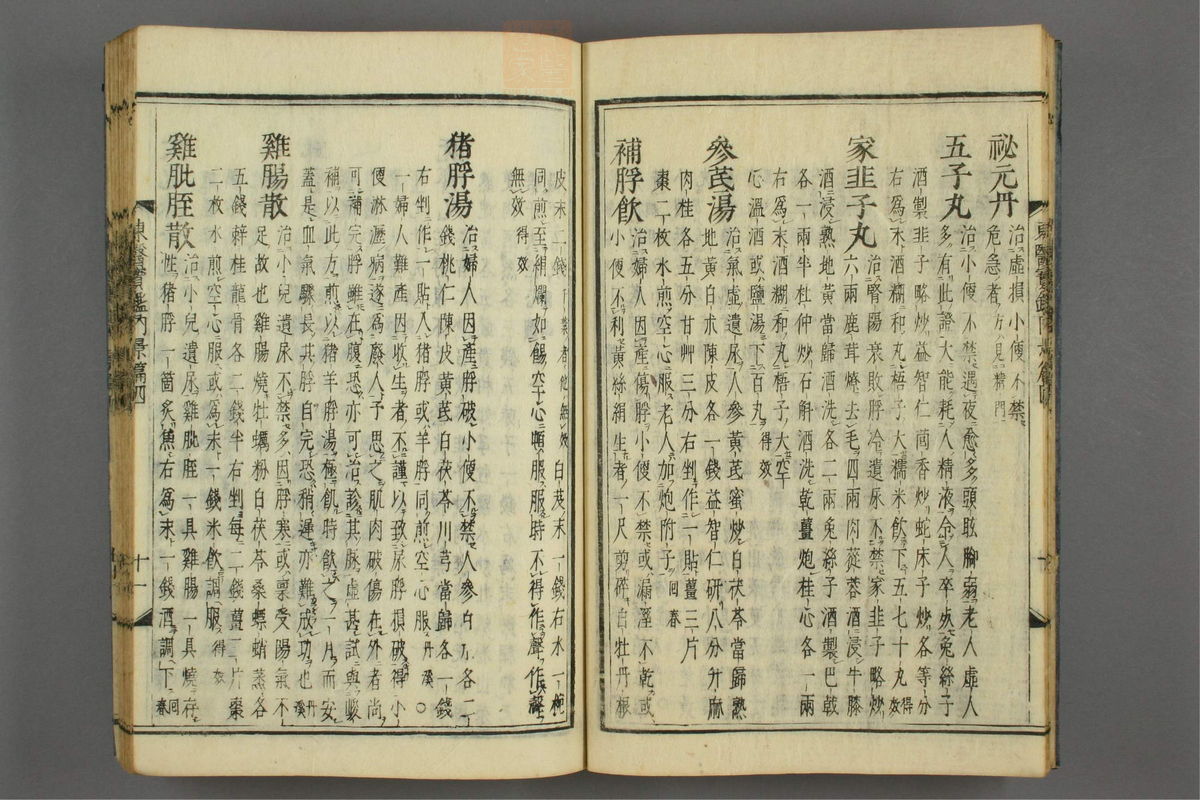 祕元丹治虛損小便不禁
危急者方見精門
五子丸治小便不禁遇夜愈多頭眩脚弱老人虛人
多有此證大能耗人精液令人卒死兔絲子
酒製韭子略炒益智仁茴香炒蛇床子炒各等分
右爲末酒糊和丸梧子大糯米飮下五七十丸得效
家韭子丸治腎陽衰敗脬冷遺尿不禁家韭子略炒
六兩鹿茸燎去毛四兩肉蓯蓉酒浸牛膝
酒浸熟地黃當歸酒洗各二兩兔絲子酒製巴戟
各一兩半杜仲炒石斛酒洗乾薑炮桂心各一兩
右爲末酒糊和丸梧子大空
心溫酒或鹽湯下百丸得效
參芪湯治氣虛遺尿人參黃芪蜜炒白茯苓當歸熟
地黃白朮陳皮各一錢益智仁研八分升麻
肉桂各五分甘艸三分右剉作一貼薑三片
棗二枚水煎空心服老人加炮附子回春
補脬飮治婦人因產傷脬小便不禁或漏溼不乾或
小便不利黃絲絹生者一尺剪碎白牡丹根
皮末二錢白芨末一錢右水一椀
同煎至絹爛如餳空心頓服服時不得作聲作聲
無效得效
猪脬湯治婦人因產脬破小便不禁人參白朮各二
錢桃仁陳皮黃芪白茯苓川芎當歸各一錢
右剉作一貼入猪脬或羊脬同煎空心服丹溪○
一婦人難產因收生者不謹以致尿脬損破得小
便淋瀝病遂爲廢人予思之肌肉破傷在外者尚
可補完脬雖在腹恐亦可治診其脉虛甚試與峻
補以此方煎以猪羊脬湯極飢時飮之一月而安
蓋是血氣驟長其脬自完恐稍遲亦難成功也丹溪
雞腸散治小兒遺尿不禁多因脬寒或稟受陽氣不
足故也雞腸燒牡蠣粉白茯苓桑螵蛸蒸各
五錢辣桂龍骨各二錢半右剉每二錢薑三片棗
二枚水煎空心服或爲末一錢米飮調服得效
雞肶胵散治小兒遺尿雞肶胵一具雞腸一具燒存
性猪脬一箇炙焦右爲末一錢酒調下回春
東醫寶鑑內景篇四
十一